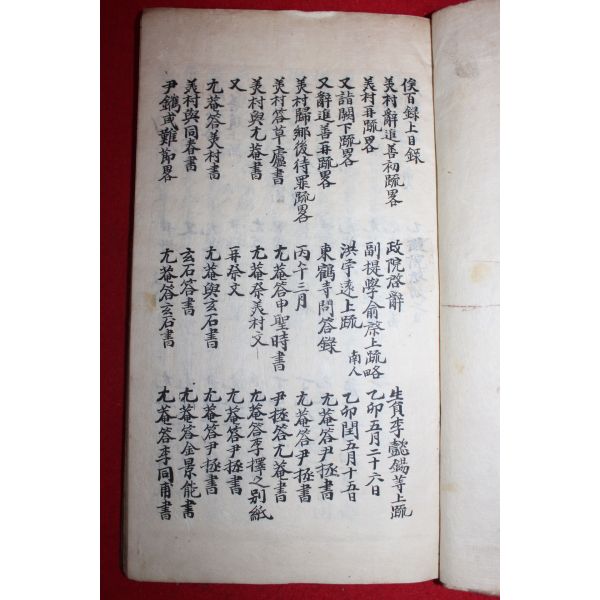 俟百錄上目錄
美村辭進善初疏畧
美村再疏畧
又詣闕下疏畧
又辭進善再疏畧
美村歸鄕後待罪疏畧
美村答草廬書
美村與尤菴書
又
尤菴答美村書
美村與同春書
尹鑴或難節畧
政院啓辭
副提學俞棨上疏略
洪宇遠上疏 南人
東鶴寺問答錄
丙午三月
尤菴答申聖時書
尤菴祭美村文
再祭文
尤菴與玄石書
玄石答書
尤菴答玄石書
生員李懿錫等上疏
乙卯五月二十六日
乙卯閏五月十五日
尤菴答尹拯書
尤菴答尹拯書
尹拯答尤菴書
尤菴答李擇之別紙
尤菴答尹拯書
尤菴答尹拯書
尤菴答金景能書
尤菴答李同甫書